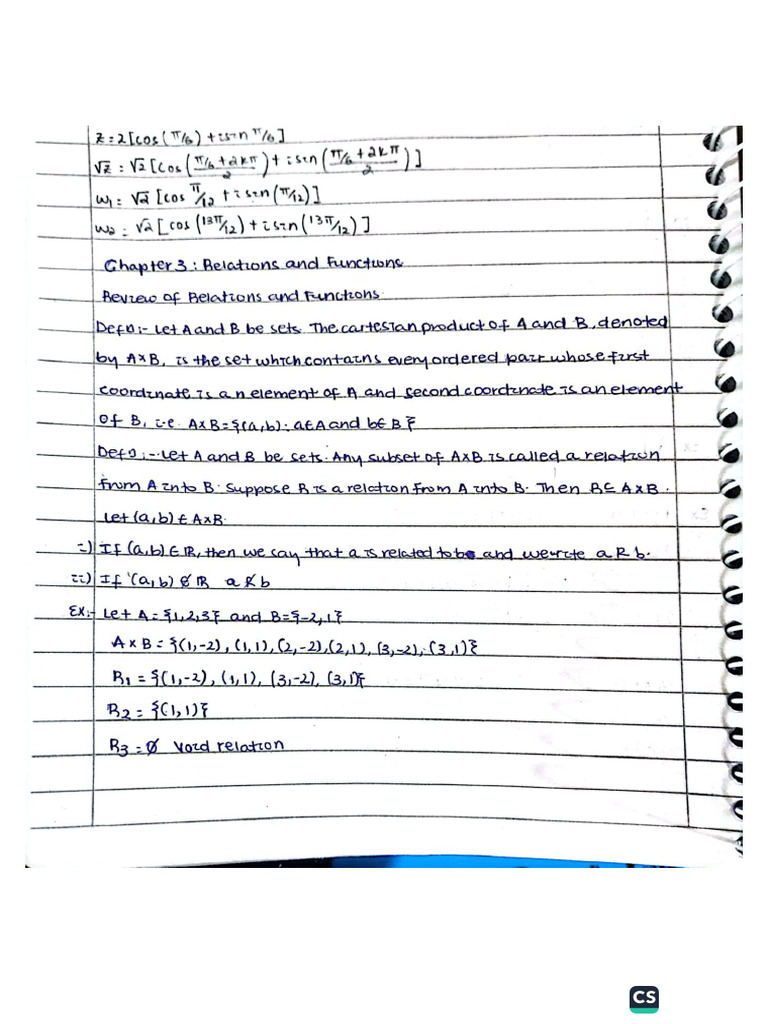 z = 2[cos(π/6) + isin π/6]
√z = √2 [cos((π/6+2kπ)/2) + isin((π/6+2kπ)/2)]
w₁ = √2 [cos π/12 + isin(π/12)]
w₂ = √2 [cos(13π/12) + isin(13π/12)]
Chapter 3: Relations and Functions
Review of Relations and Functions.
Defn:- Let A and B be sets. The cartesian product of A and B, denoted
by A×B, is the set which contains every ordered pair whose first
coordinate is an element of A and second coordinate is an element
of B, i.e. A×B={(a,b): a∈A and b∈B}
Defn:- Let A and B be sets. Any subset of A×B is called a relation
from A into B. Suppose R is a relation from A into B. Then R⊆A×B.
Let (a,b)∈A×B.
i) If (a,b)∈ℝ, then we say that a is related to b and we write a R b.
ii) If (a,b)∉ℝ a R̸ b
Ex:- Let A={1,2,3} and B={-2,1}
A×B={(1,-2),(1,1),(2,-2),(2,1),(3,-2),(3,1)}
R₁={(1,-2),(1,1),(3,-2),(3,1)}
R₂={(1,1)}
R₃=∅ Void relation
CS